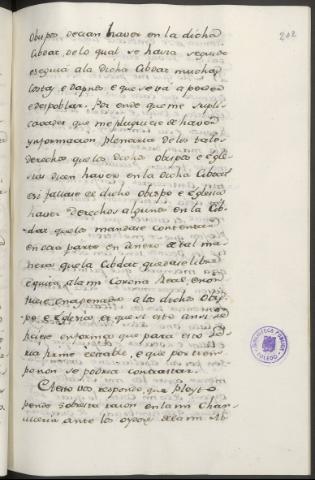 202
Obispo, decian haver en la dicha
Cibdat, de lo qual se havia seguido
e seguia á la dicha Cibdat muchas
costas, e dapnos, e que se iva a perder
e despoblar. Por ende que me supli-
cavades que me pluguiese de haver
ynformacion plenaria de los tales
derechos que los dichos Obispos e Egle-
sias dicen haver en la dicha Cibdat
e si fallare el dicho Obispo e Eglesia
haver derechos algunos en la Cib-
dat que lo mandare contentar
en otra parte en dinero e tal ma-
nera que la Cibdat quedare libre
e quita, á la mi Corona Real, e non
fuese enagenado a los dichos Obis-
po, e Eglesia, et que si esto ansi se
ficiese en forma que para esto se-
ria firme estable, e que por tiem-
po non se podria contrastar.
A esto vos respondo, que Pleyto
pende sobre esta razon en la mi Chan-
cilleria ante los oydores de la mi Ab-
BIBLIOTECA PUBLICA
TOLEDO